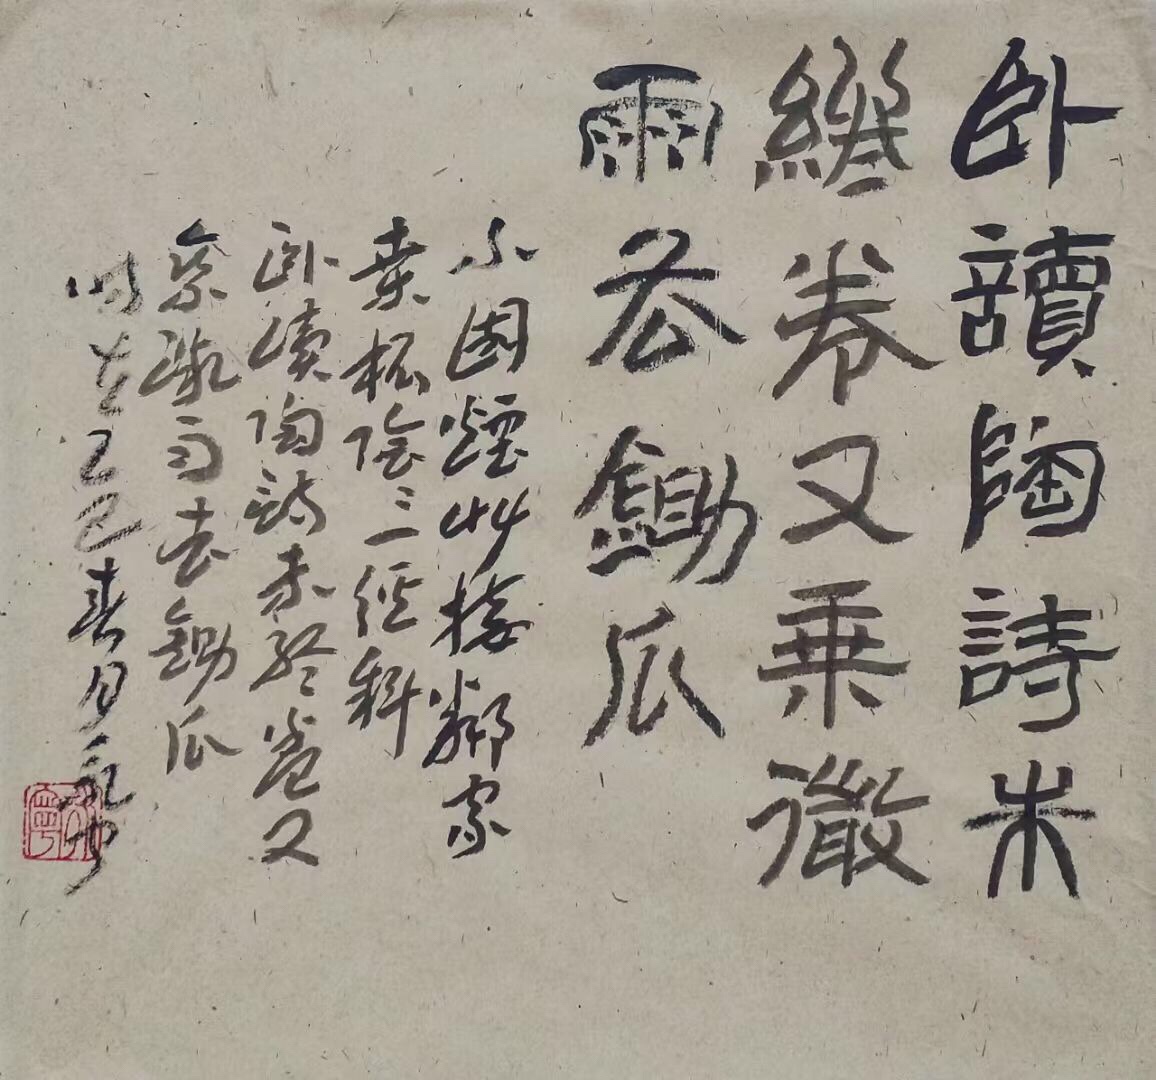 臥讀陶詩未
終卷又乘微
雨去鋤瓜
小園煙艸接鄰家
桑柘陰陰三徑斜
臥讀陶詩未終卷又
乘微雨去鋤瓜
時在乙巳春月